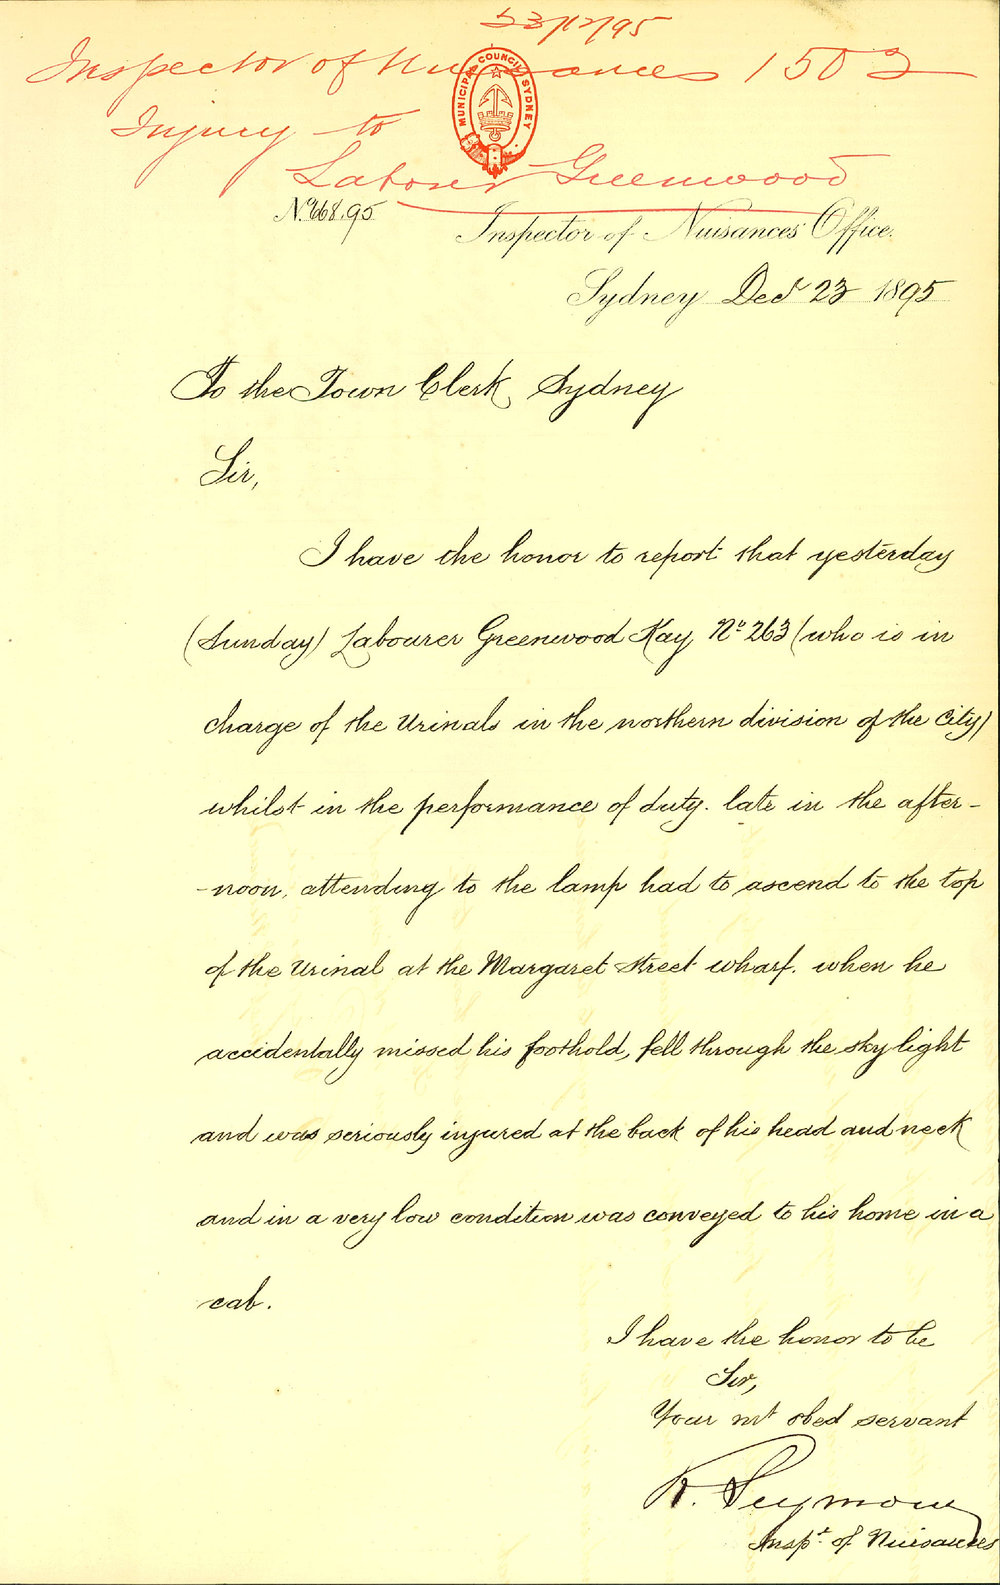 23/12/95
Inspector of Nuisances 1502
Injury to
MUNICIPAL COUNCIL SYDNEY
Labourer Greenwood
No. 668.95.
Inspector of Nuisances Office.
Sydney Decr 23 1895
To the Town Clerk, Sydney
Sir,
I have the honor to report that yesterday
(Sunday) Labourer Greenwood Kay, No 263 (who is in
charge of the Urinals in the northern division of the City)
whilst in the performance of duty. late in the after-
-noon, attending to the lamp had to ascend to the top
of the Urinal at the Margaret Street wharf. when he
accidentally missed his foothold, fell through the sky light
and was seriously injured at the back of his head and neck
and in a very low condition was conveyed to his home in a
cab.
I have the honor to be
Sir,
Your mt obed servant
R. Seymour
Inspr. of Nuisances